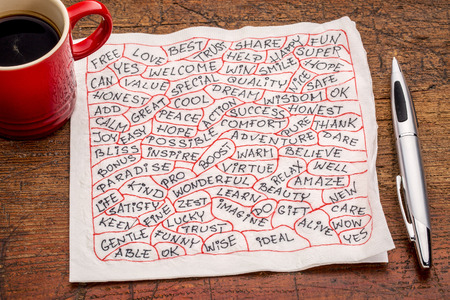 FREE LOVE BEST TRUST SHARE HAPPY FUN
YES WELCOME WIN HELP SMILE SUPER
CAN VALUE SPECIAL QUALITY NICE HOPE
HONEST GREAT COOL DREAM WISDOM SAFE OK
ADD CALM PEACE ACTION SUCCESS HONEST
JOY EASY HOPE COMFORT PURE THANK
BLISS POSSIBLE ADVENTURE DARE
BONUS INSPIRE BOOST WARM BELIEVE
PARADISE PRO VIRTUE RELAX WELL
LIFE KIND WONDERFUL LEARN BEAUTY AMAZE
SATISFY ZEST IMAGINE DO GIFT NEW
KEEN FINE LUCKY CARE
GENTLE FUNNY TRUST ALIVE WOW
ABLE OK WISE IDEAL YES